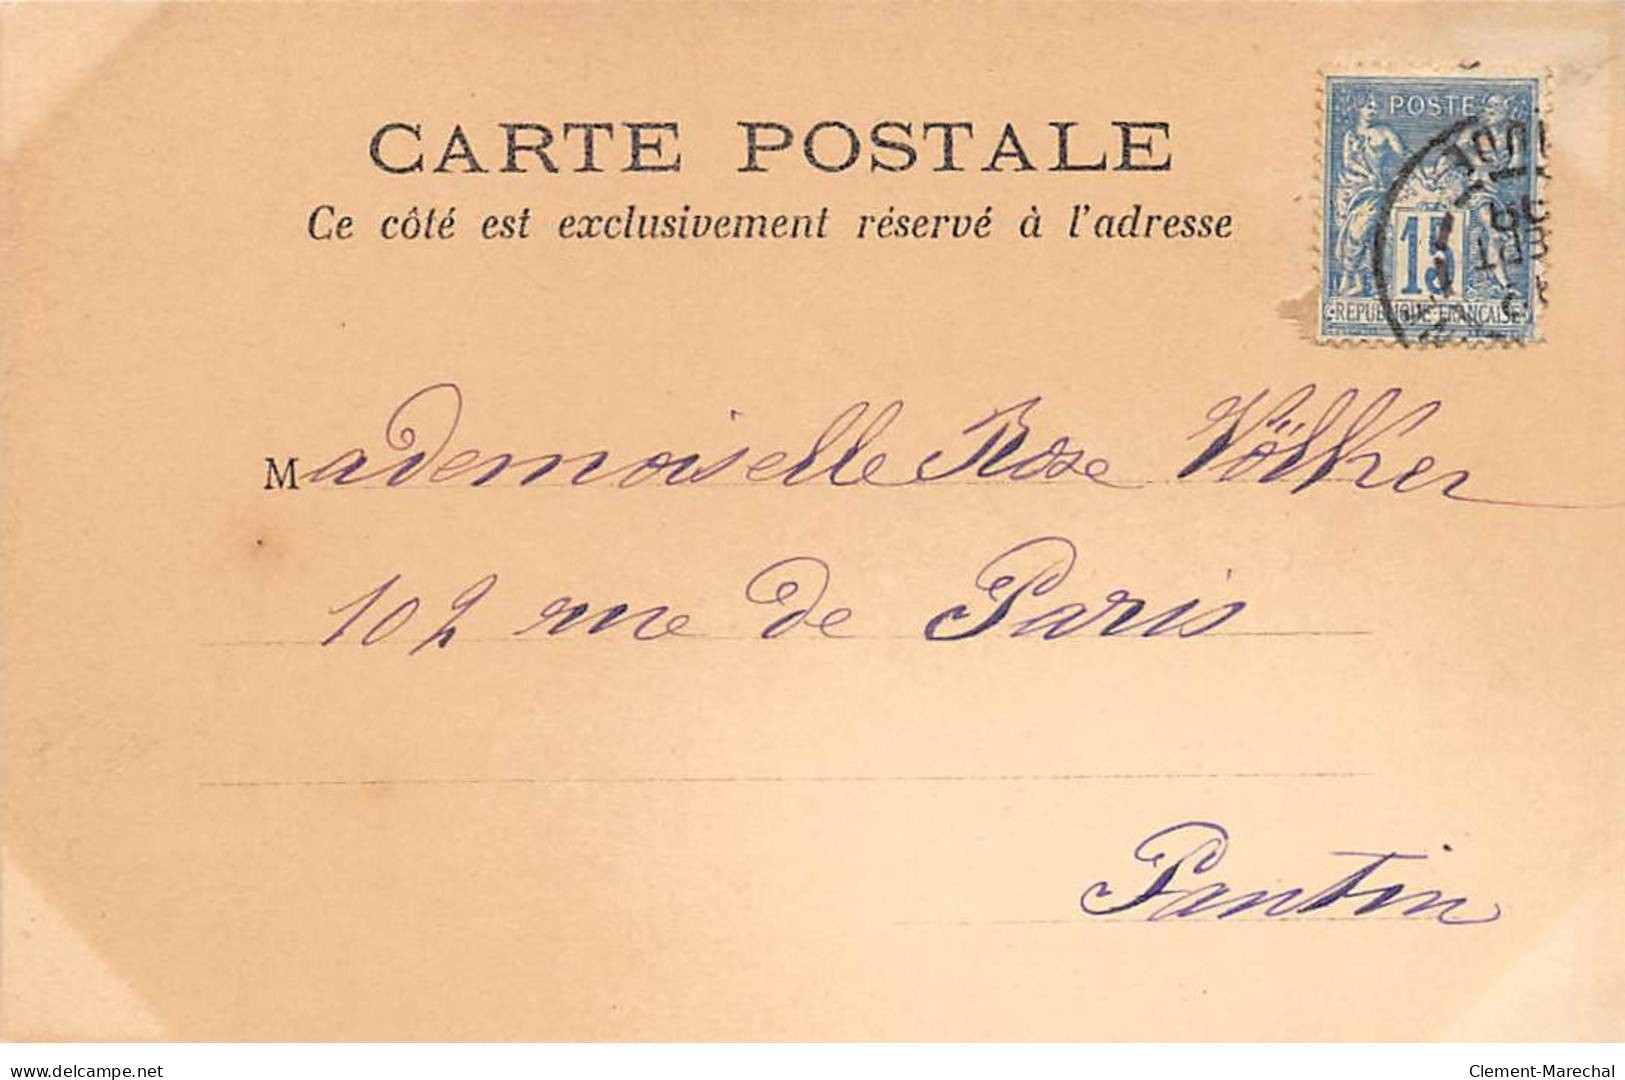 CARTE POSTALE
Ce côté est exclusivement réservé à l'adresse
POSTES
15
REPUBLIQUE FRANCAISE
Mademoiselle Rose Völker
102 rue de Paris
Pantin
delcampe.net
Clement-Marechal